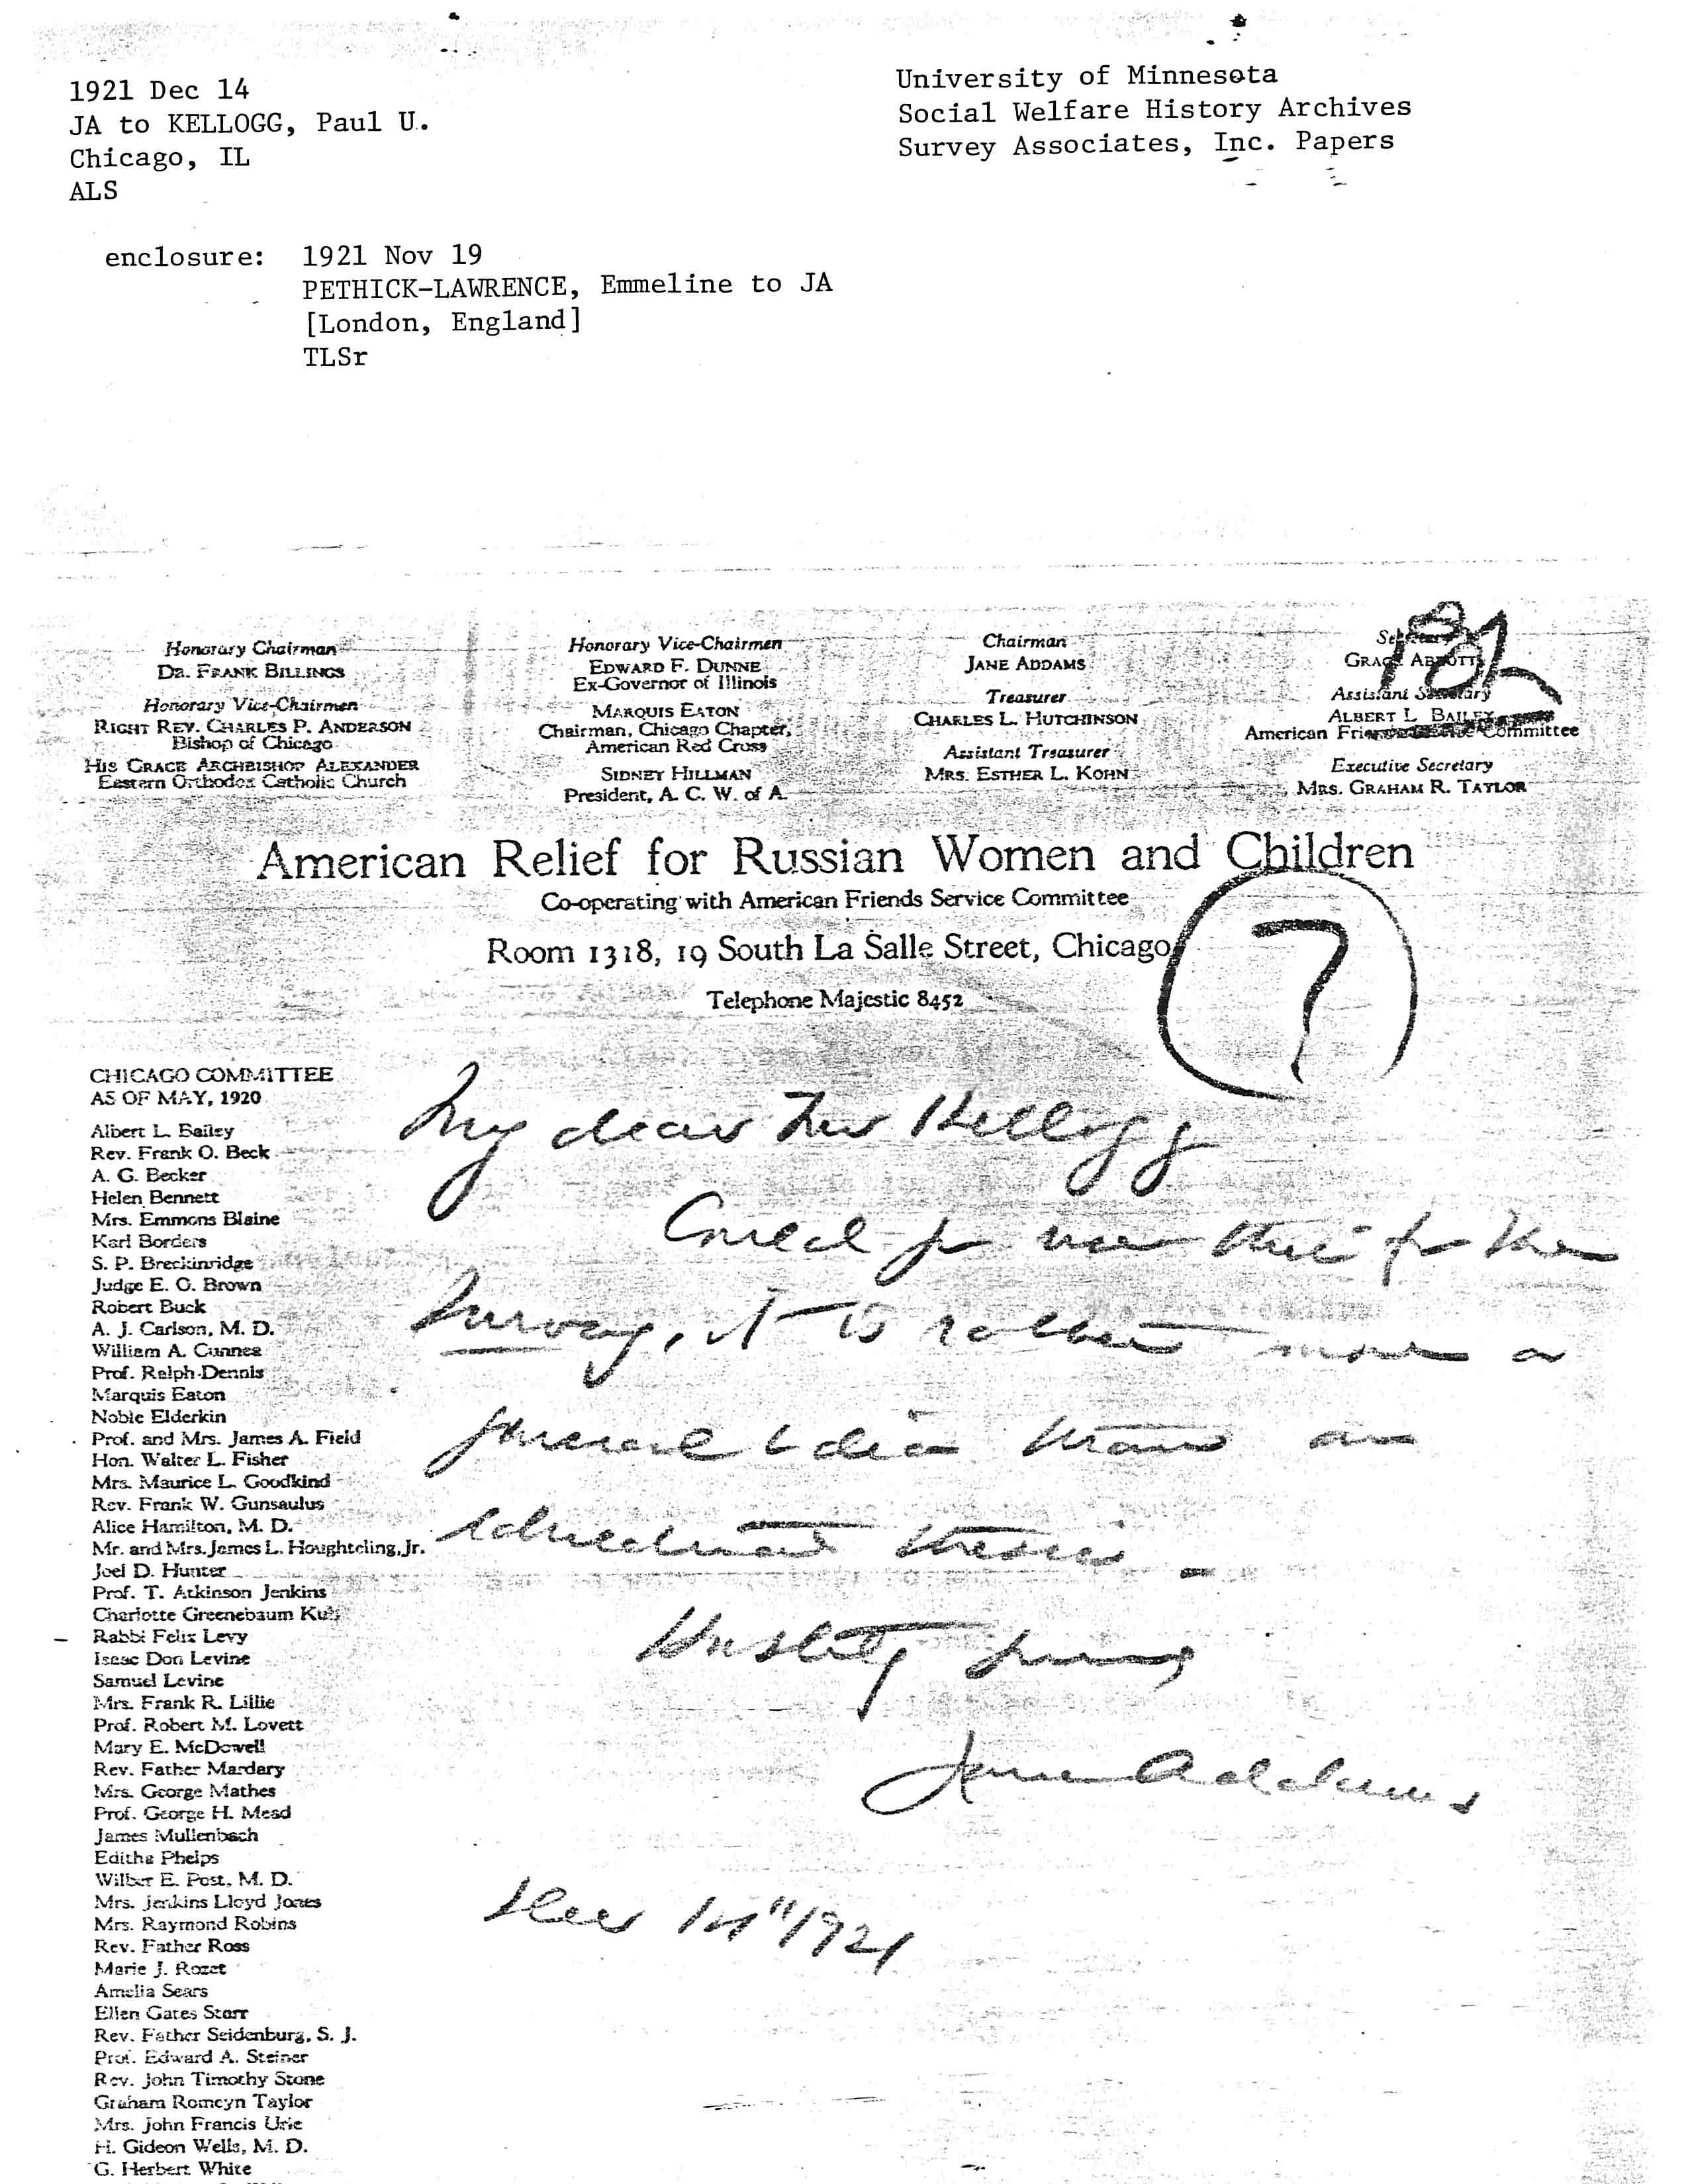 1921 Dec 14
JA to KELLOGG, Paul U.
Chicago, IL
ALS
University of Minnesota
Social Welfare History Archives
Survey Associates, Inc. Papers
enclosure: 1921 Nov 19
PETHICK-LAWRENCE, Emmeline to JA
[London, England]
TLSr
Honorary Chairman
DR. FRANK BILLINGS
Honorary Vice-Chairmen
RIGHT REV. CHARLES P. ANDERSON
Bishop of Chicago
HIS GRACE ARCHBISHOP ALEXANDER
Eastern Orthodox Catholic Church
Honorary Vice-Chairmen
EDWARD F. DUNNE
Ex-Governor of Illinois
MARQUIS EATON
Chairman, Chicago Chapter,
American Red Cross
SIDNEY HILLMAN
President, A. C. W. of A.
Chairman
JANE ADDAMS
Treasurer
CHARLES L. HUTCHINSON
Assistant Treasurer
MRS. ESTHER L. KOHN
Secretary
GRACE ABBOTT
Assistant Secretary
ALBERT L. BAILEY
American Friends Service Committee
Executive Secretary
MRS. GRAHAM R. TAYLOR
American Relief for Russian Women and Children
Co-operating with American Friends Service Committee
Room 1318, 19 South La Salle Street, Chicago
?
Telephone Majestic 8452
CHICAGO COMMITTEE
AS OF MAY, 1920
Albert L. Bailey
Rev. Frank O. Beck
A. G. Becker
Helen Bennett
Mrs. Emmons Blaine
Karl Borders
S. P. Breckinridge
Judge E. O. Brown
Robert Buck
A. J. Carlson, M. D.
William A. Cunnea
Prof. Ralph Dennis
Marquis Eaton
Noble Elderkin
Prof. and Mrs. James A. Field
Hon. Walter L. Fisher
Mrs. Maurice L. Goodkind
Rev. Frank W. Gunsaulus
Alice Hamilton, M. D.
Mr. and Mrs. James L. Houghteling, Jr.
Joel D. Hunter
Prof. T. Atkinson Jenkins
Charlotte Greenebaum Kuh
Rabbi Felix Levy
Isaac Don Levine
Samuel Levine
Mrs. Frank R. Lillie
Prof. Robert M. Lovett
Mary E. McDowell
Rev. Father Mardary
Mrs. George Mathes
Prof. George H. Mead
James Mullenbach
Editha Phelps
Wilber E. Post, M. D.
Mrs. Jenkins Lloyd Jones
Mrs. Raymond Robins
Rev. Father Ross
Marie J. Rozet
Amelia Sears
Ellen Gates Starr
Rev. Father Seidenburg, S. J.
Prof. Edward A. Steiner
Rev. John Timothy Stone
Graham Romeyn Taylor
Mrs. John Francis Urie
H. Gideon Wells, M. D.
G. Herbert White
My dear Mr Kellogg
Could you use this for the
Survey, it is rather more a
general idea than an
educational thesis -
Hastily yours
Jane Addams
Dec 14" 1921